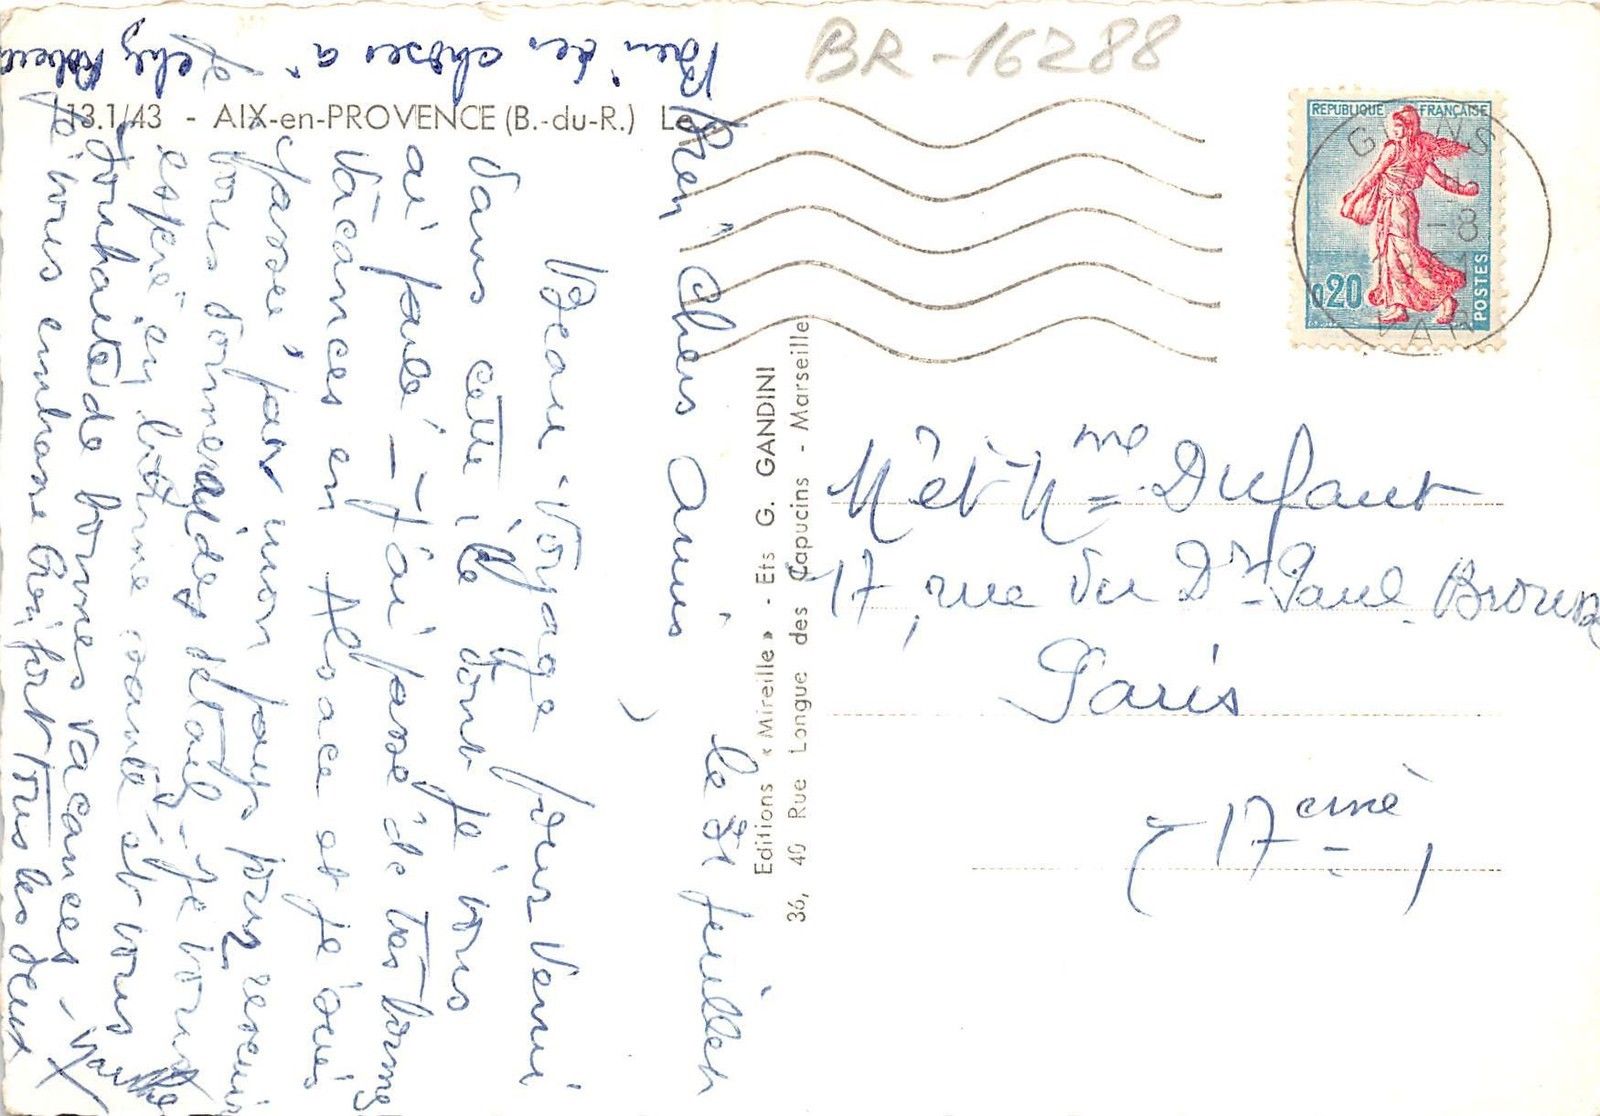 BR-16288
13.1/43 - AIX-en-PROVENCE (B.-du-R.) Le
REPUBLIQUE FRANÇAISE
0,20
POSTES
-8
VAR
Editions « Mireille » - Ets G. GANDINI
36, 40 Rue Longue des Capucins - Marseille
Mr et Mme Dufaut
17, rue du Dr Paul Brousse
Paris
(17ème)
le 31 juillet
Bien chers Amis,
Beau voyage pour venir
dans cette ville dont je vous
ai parlé - J'ai passé de très bonnes
vacances en Alsace et je suis
passé par mon pays pour revenir
vous donnerai des détails - Je vous
espère en bonne santé et vous
souhaite de bonnes vacances -
Je vous embrasse bien fort tous les deux
Marthe
Bien des choses à
chez